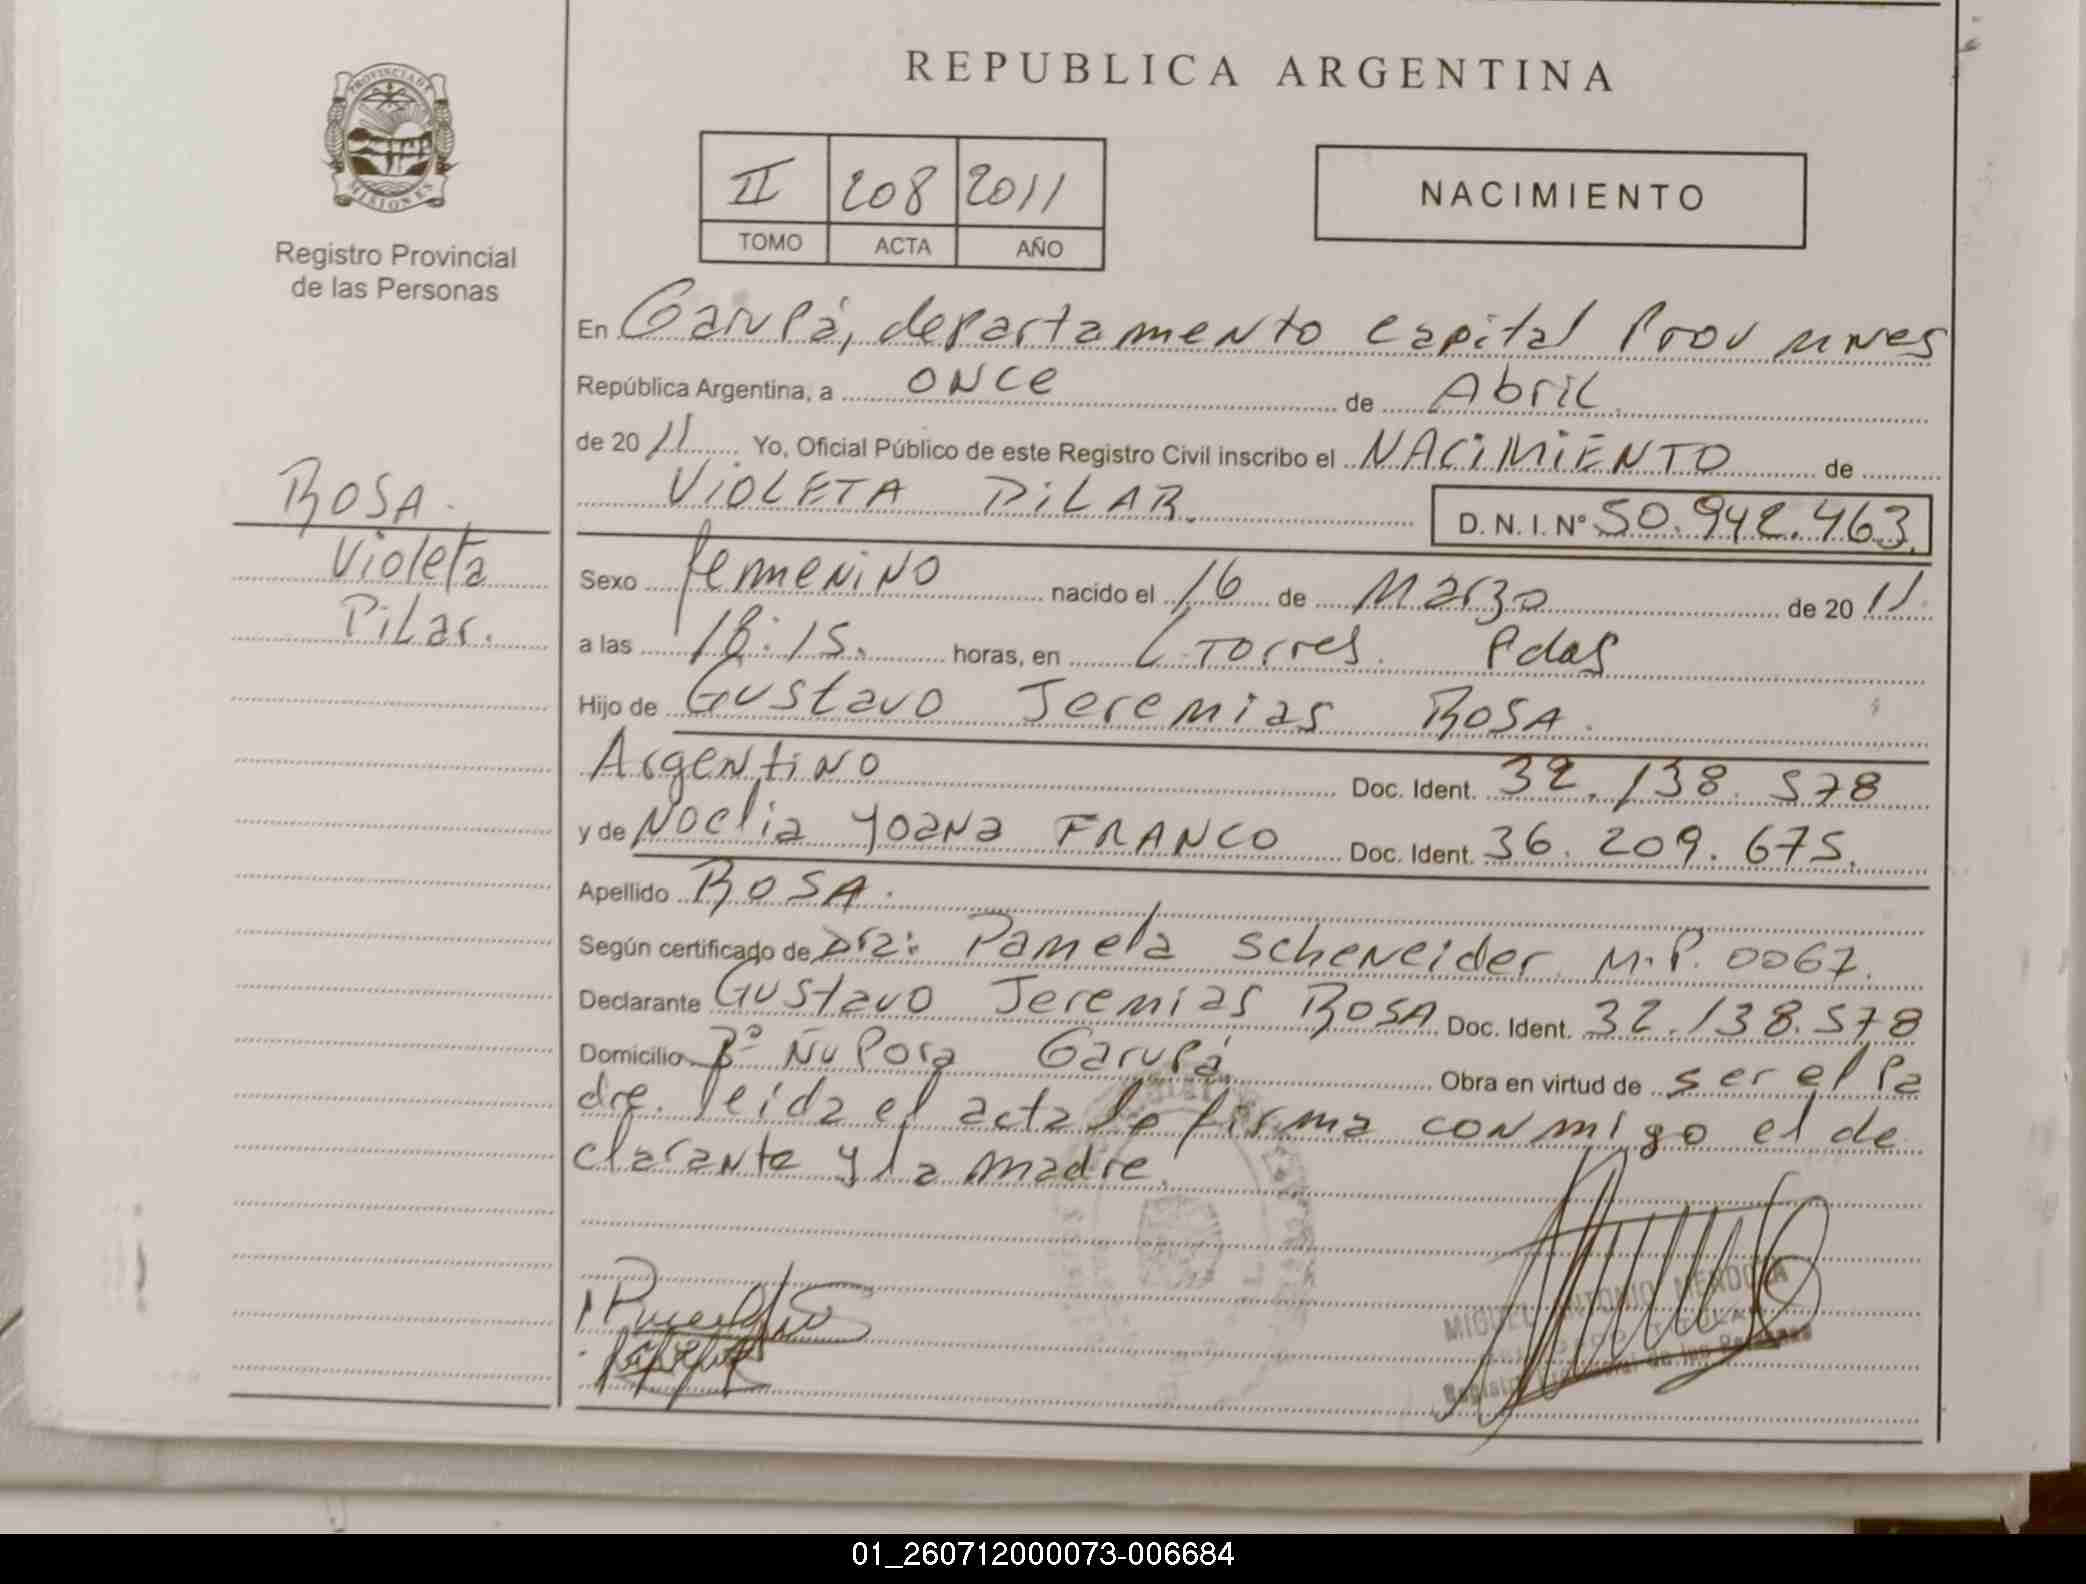 REPUBLICA ARGENTINA
PROVINCIA DE
MISIONES
Registro Provincial
de las Personas
II 208 2011
TOMO ACTA AÑO
NACIMIENTO
En Garupá, departamento Capital Prov
República Argentina, a once de Abril
de 2011 Yo, Oficial Público de este Registro Civil inscribo el NACIMIENTO de
VIOLETA PILAR. D. N. I. Nº 50.942.463.
ROSA.
Violeta
Pilar.
Sexo femenino nacido el 16 de Marzo de 2011.
a las 18:15. horas, en L Torres. Pdas
Hijo de Gustavo Jeremias ROSA.
Argentino Doc. Ident. 32.138.578
y de Noelia Yoana FRANCO Doc. Ident. 36.209.675.
Apellido ROSA.
Según certificado de Dra: Pamela Scheneider M.P. 0067.
Declarante Gustavo Jeremias ROSA Doc. Ident. 32.138.578
Domicilio Bº Ñu Pora Garupá Obra en virtud de ser el pa
dre. leida el acta la firma conmigo el de
clarante y la madre.
MIGUEL ANTONIO MENDOZA
TITULAR
Registro Provincial de las Personas
01_260712000073-006684